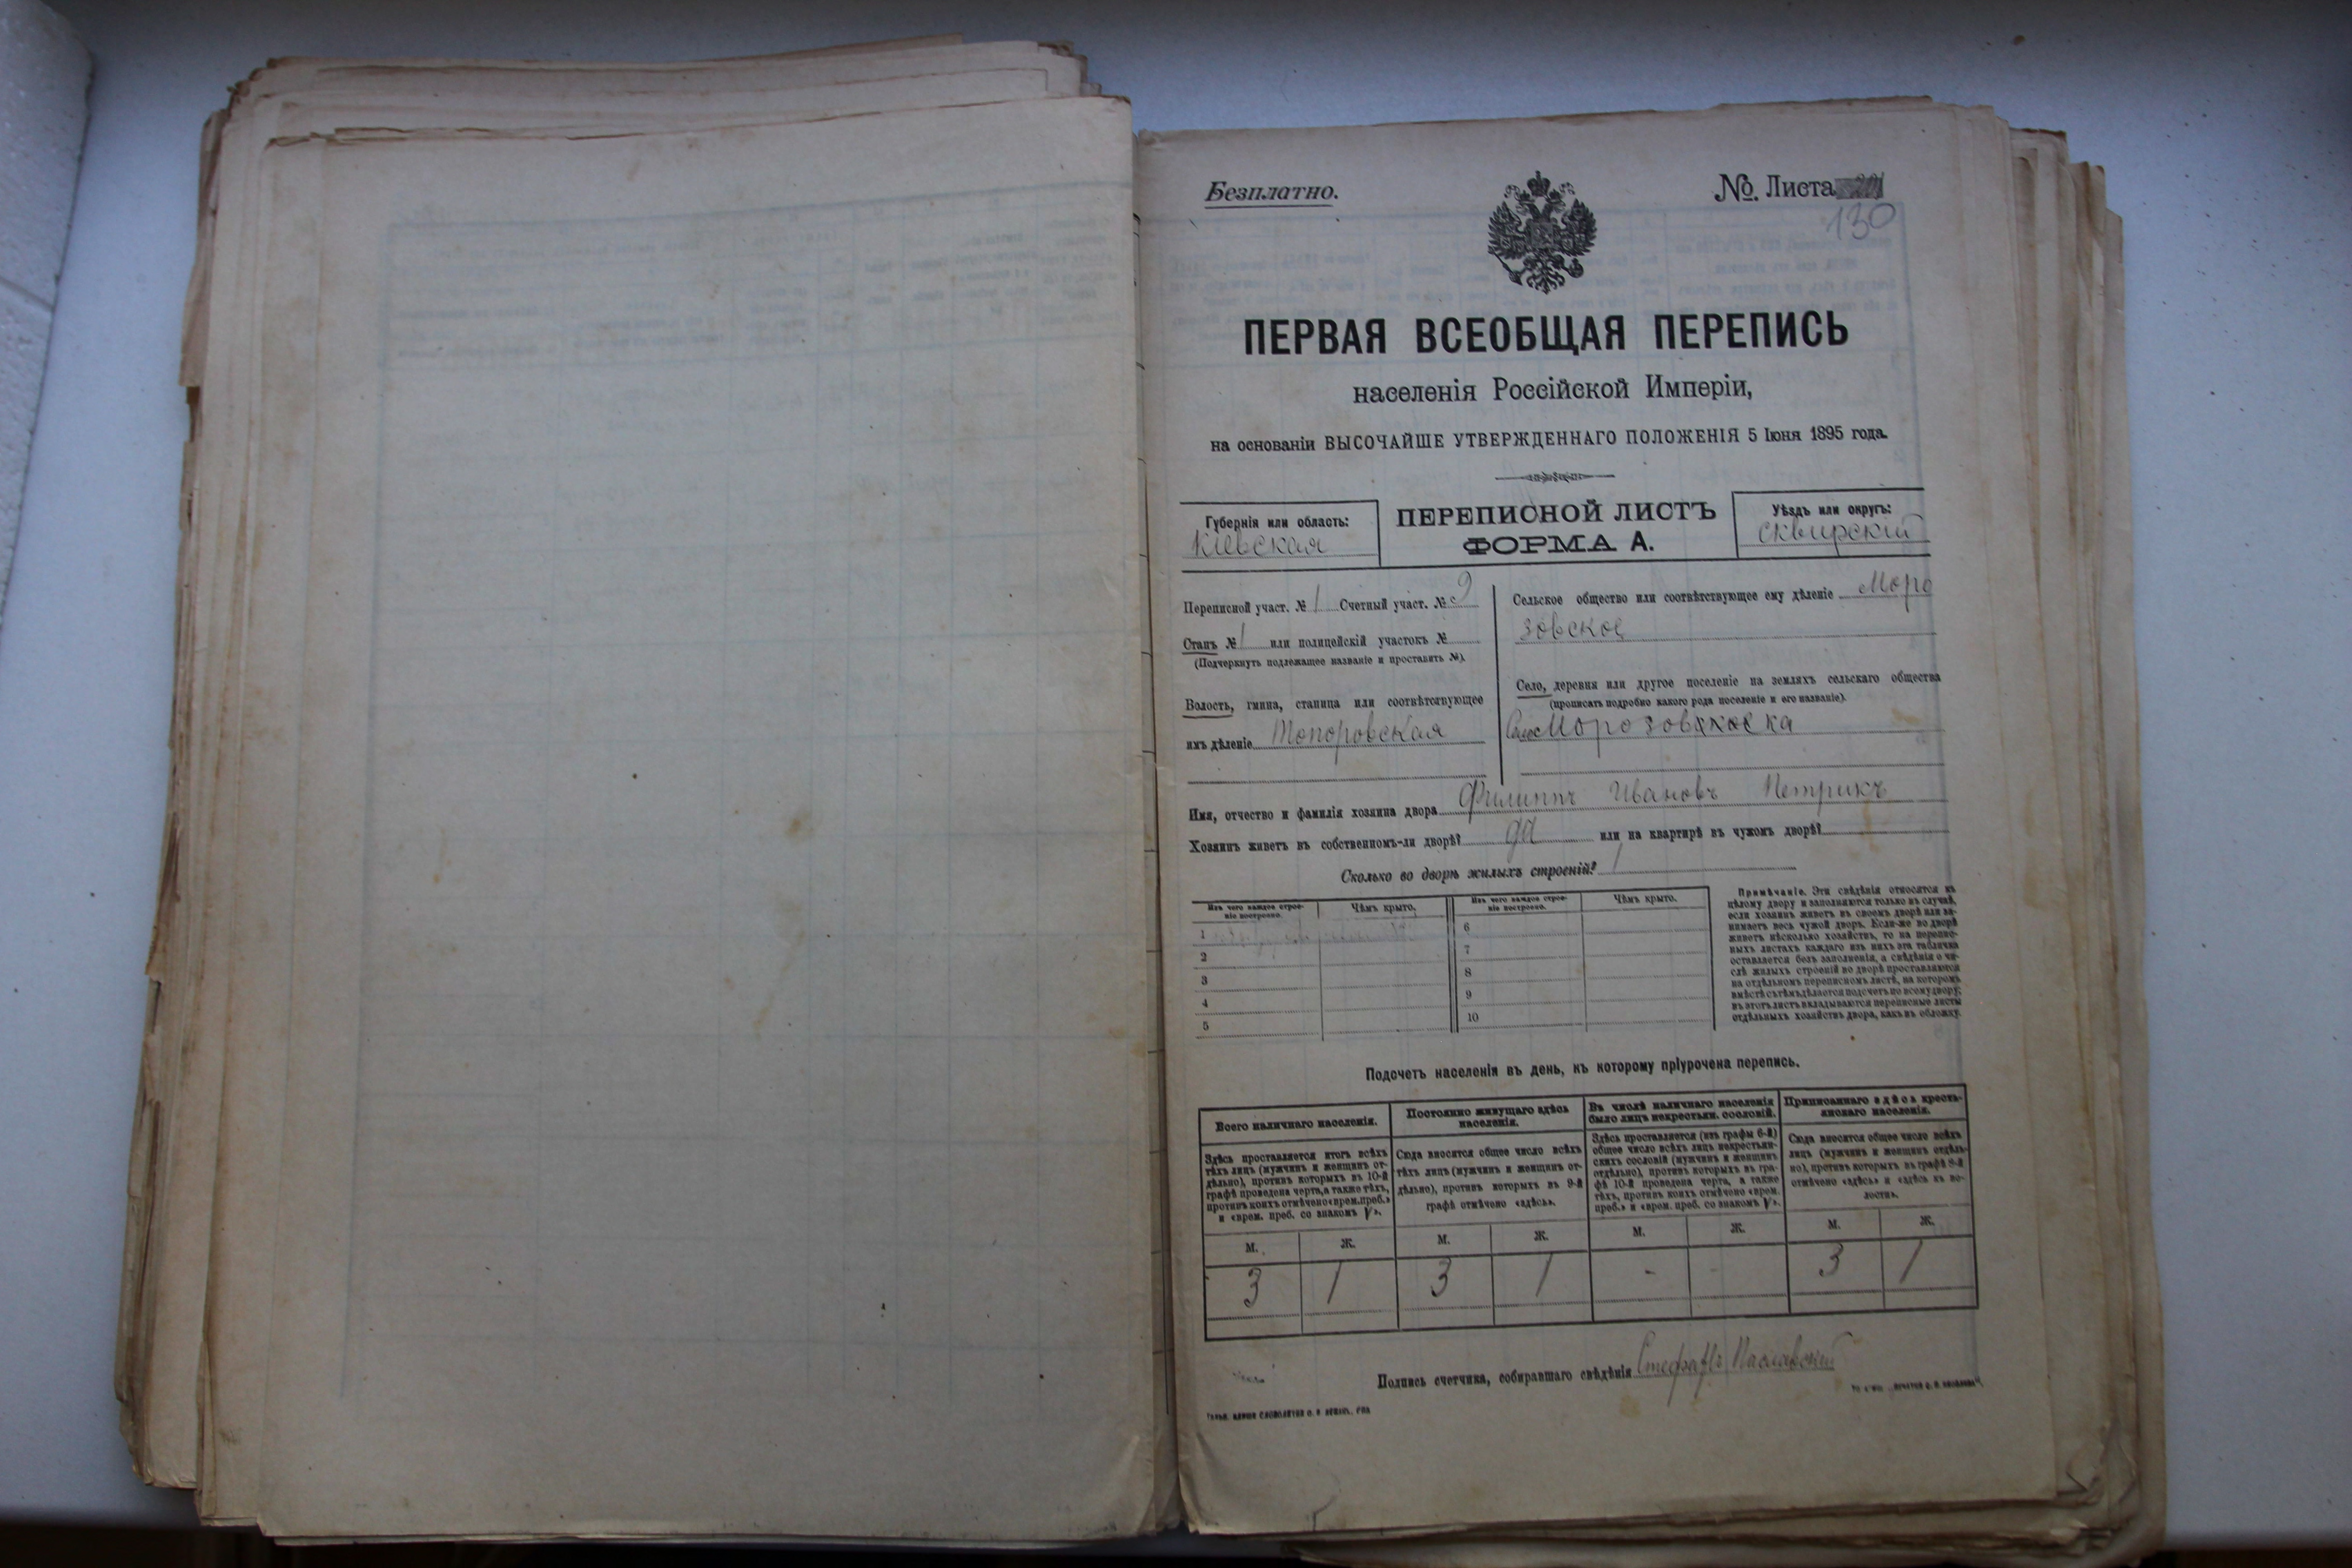 Безплатно.
№. Листа
130
ПЕРВАЯ ВСЕОБЩАЯ ПЕРЕПИСЬ
населенія Россійской Имперіи,
на основаніи ВЫСОЧАЙШЕ УТВЕРЖДЕННАГО ПОЛОЖЕНІЯ 5 Іюня 1895 года.
Губернія или область:
Кіевская
ПЕРЕПИСНОЙ ЛИСТЪ
ФОРМА А.
Уѣздъ или округъ:
Сквирскій
Переписной участ. № 1 Счетный участ. № 9
Станъ № 1 или полицейскій участокъ №
(Подчеркнуть подлежащее названіе и проставить №).
Волость, гмина, станица или соотвѣтствующее
имъ дѣленіе Топоровская
Сельское общество или соотвѣтствующее ему дѣленіе Моро
зовское
Село, деревня или другое поселеніе на земляхъ сельскаго общества
(прописать подробно какого рода поселеніе и его названіе).
Село Морозовка
Имя, отчество и фамилія хозяина двора Филиппъ Ивановъ Петрикъ
Хозяинъ живетъ въ собственномъ-ли дворѣ? да или на квартирѣ въ чужомъ дворѣ?
Сколько во дворѣ жилыхъ строеній? 1
Изъ чего каждое строе-
ніе построено.
Чѣмъ крыто.
1
2
3
4
5
Изъ чего каждое строе-
ніе построено.
Чѣмъ крыто.
6
7
8
9
10
Примѣчаніе. Эти свѣдѣнія относятся къ
цѣлому двору и заполняются только въ случаѣ,
если хозяинъ живетъ въ своемъ дворѣ или за-
нимаетъ весь чужой дворъ. Если-же во дворѣ
живетъ нѣсколько хозяйствъ, то на перепис-
ныхъ листахъ каждаго изъ нихъ эта табличка
оставляется безъ заполненія, а свѣдѣнія о чи-
слѣ жилыхъ строеній во дворѣ проставляются
на отдѣльномъ переписномъ листѣ, на которомъ
вмѣстѣ съ тѣмъ дѣлается подсчетъ по всему двору;
въ этотъ листъ вкладываются переписные листы
отдѣльныхъ хозяйствъ двора, какъ въ обложку.
Подсчетъ населенія въ день, къ которому пріурочена перепись.
Всего наличнаго населенія.
Здѣсь проставляется итогъ всѣхъ
тѣхъ лицъ (мужчинъ и женщинъ от-
дѣльно), противъ которыхъ въ 10-й
графѣ проведена черта, а также тѣхъ,
противъ коихъ отмѣчено «врем. преб.»
и «врем. преб. со знакомъ V».
М. Ж.
3 1
Постоянно живущаго здѣсь
населенія.
Сюда вносится общее число всѣхъ
тѣхъ лицъ (мужчинъ и женщинъ от-
дѣльно), противъ которыхъ въ 9-й
графѣ отмѣчено «здѣсь».
М. Ж.
3 1
Въ числѣ наличнаго населенія
было лицъ некрестьян. сословій.
Здѣсь проставляется (изъ графы 6-й)
общее число всѣхъ лицъ некрестьян-
скихъ сословій (мужчинъ и женщинъ
отдѣльно), противъ которыхъ въ гра-
фѣ 10-й проведена черта, а также
тѣхъ, противъ коихъ отмѣчено «врем.
преб.» и «врем. преб. со знакомъ V».
М. Ж.
-
Приписаннаго здѣсь кресть-
янскаго населенія.
Сюда вносится общее число всѣхъ
лицъ (мужчинъ и женщинъ отдѣль-
но), противъ которыхъ въ графѣ 8-й
отмѣчено «здѣсь» и «здѣсь въ во-
лости».
М. Ж.
3 1
Подпись счетчика, собиравшаго свѣдѣнія Стефанъ